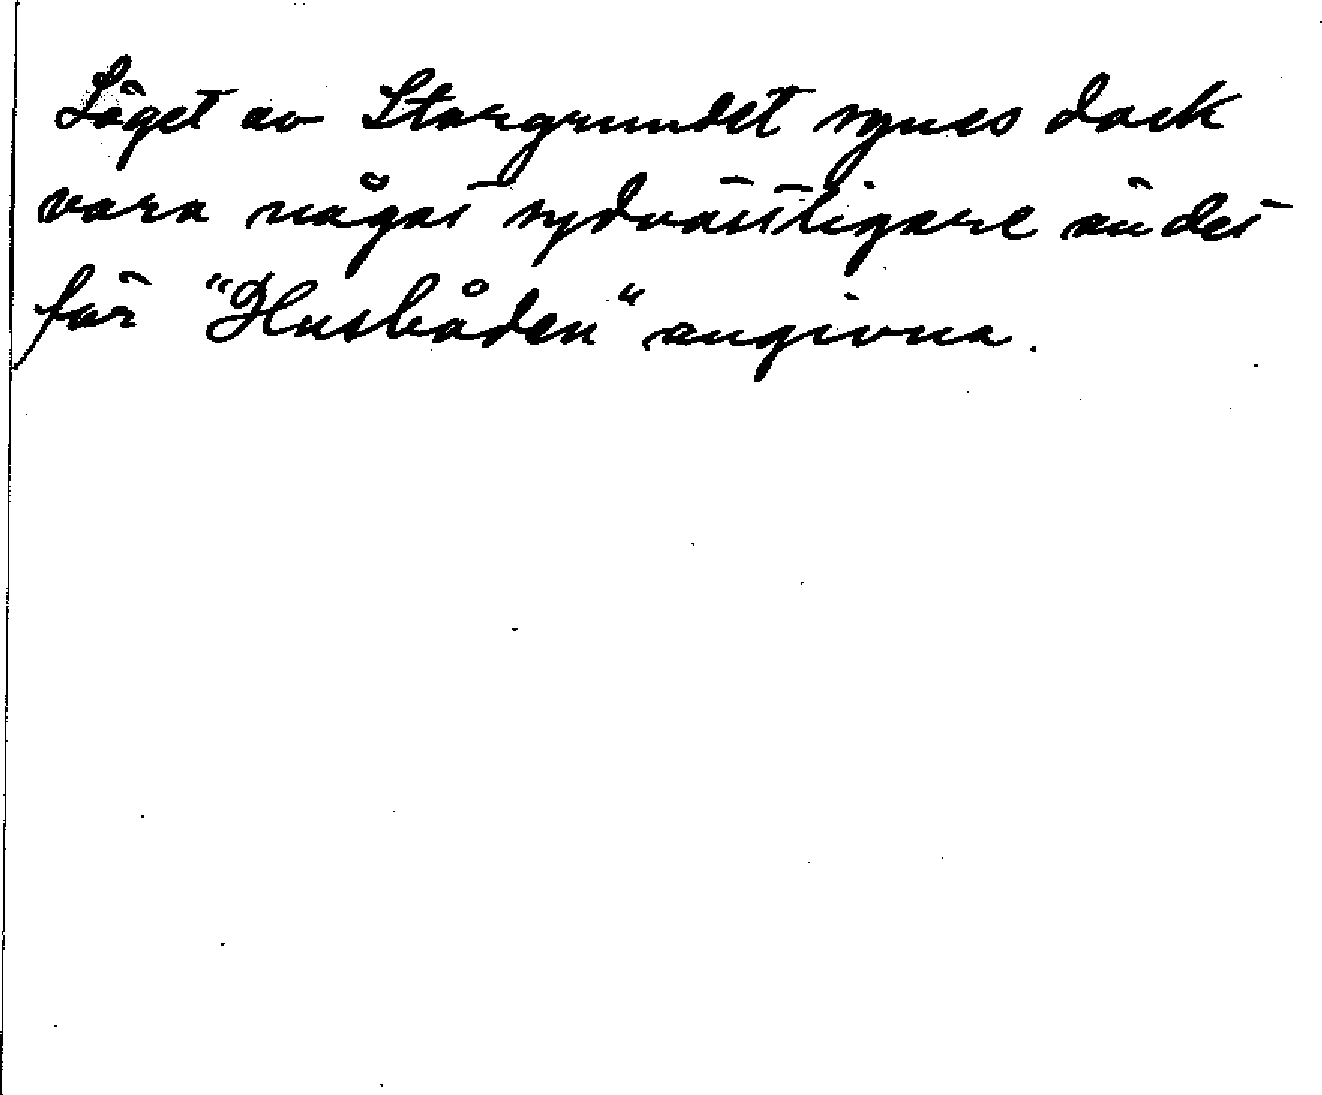 Läget av Storgrundet synes dock
vara något sydvästligare än det
för "Husbåden" angivna.